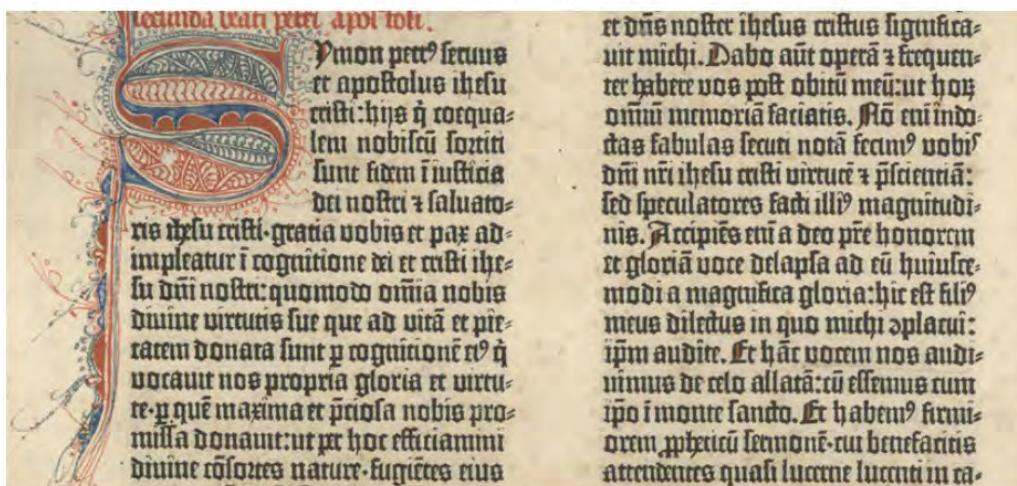 secunda beati petri apostoli.
Symon petrꝰ seruus
et apostolus ihesu
cristi: hijs q̇ coequa⸗
lem nobiscū sortiti
sunt fidem ī iusticia
dei nostri ⁊ saluato⸗
ris ihesu cristi· gratia vobis et pax ad⸗
impleatur ī cognitione dei et cristi ihe⸗
su dn̄i nostri: quomodo omīa nobis
diuine virtutis sue que ad vitā et pie⸗
tatem donata sunt ꝑ cognitionē eiꝰ q̇
vocauit nos propria gloria et virtu⸗
te· ꝑ quē maxima et p̄ciosa nobis pro⸗
missa donauit: ut per hoc efficiamini
diuine cōsortes nature· fugiētes eius
et dn̄s noster ihesus cristus significa⸗
uit michi. Dabo aūt operā ⁊ frequen⸗
ter habere vos post obitū meū: ut hoꝝ
omniū memoriā faciatis. Nō eni indo⸗
ctas fabulas secuti notā fecimꝰ vobis
dn̄i nr̄i ihesu cristi virtutē ⁊ p̄scientiā:
sed speculatores facti illiꝰ magnitudi⸗
nis. Accipiēs eni a deo pr̄e honorem
et gloriā voce delapsa ad eū huiusce⸗
modi a magnifica gloria: hic est filiꝰ
meus dilectus in quo michi ꝯplacui:
ip̄m audite. Et hāc vocem nos audi⸗
uimus de celo allatā: cū essemus cum
ip̄o ī monte sancto. Et habemꝰ firmi⸗
orem ꝓpheticū sermonē· cui benefacitis
attendentes quasi lucerne lucenti in ca⸗